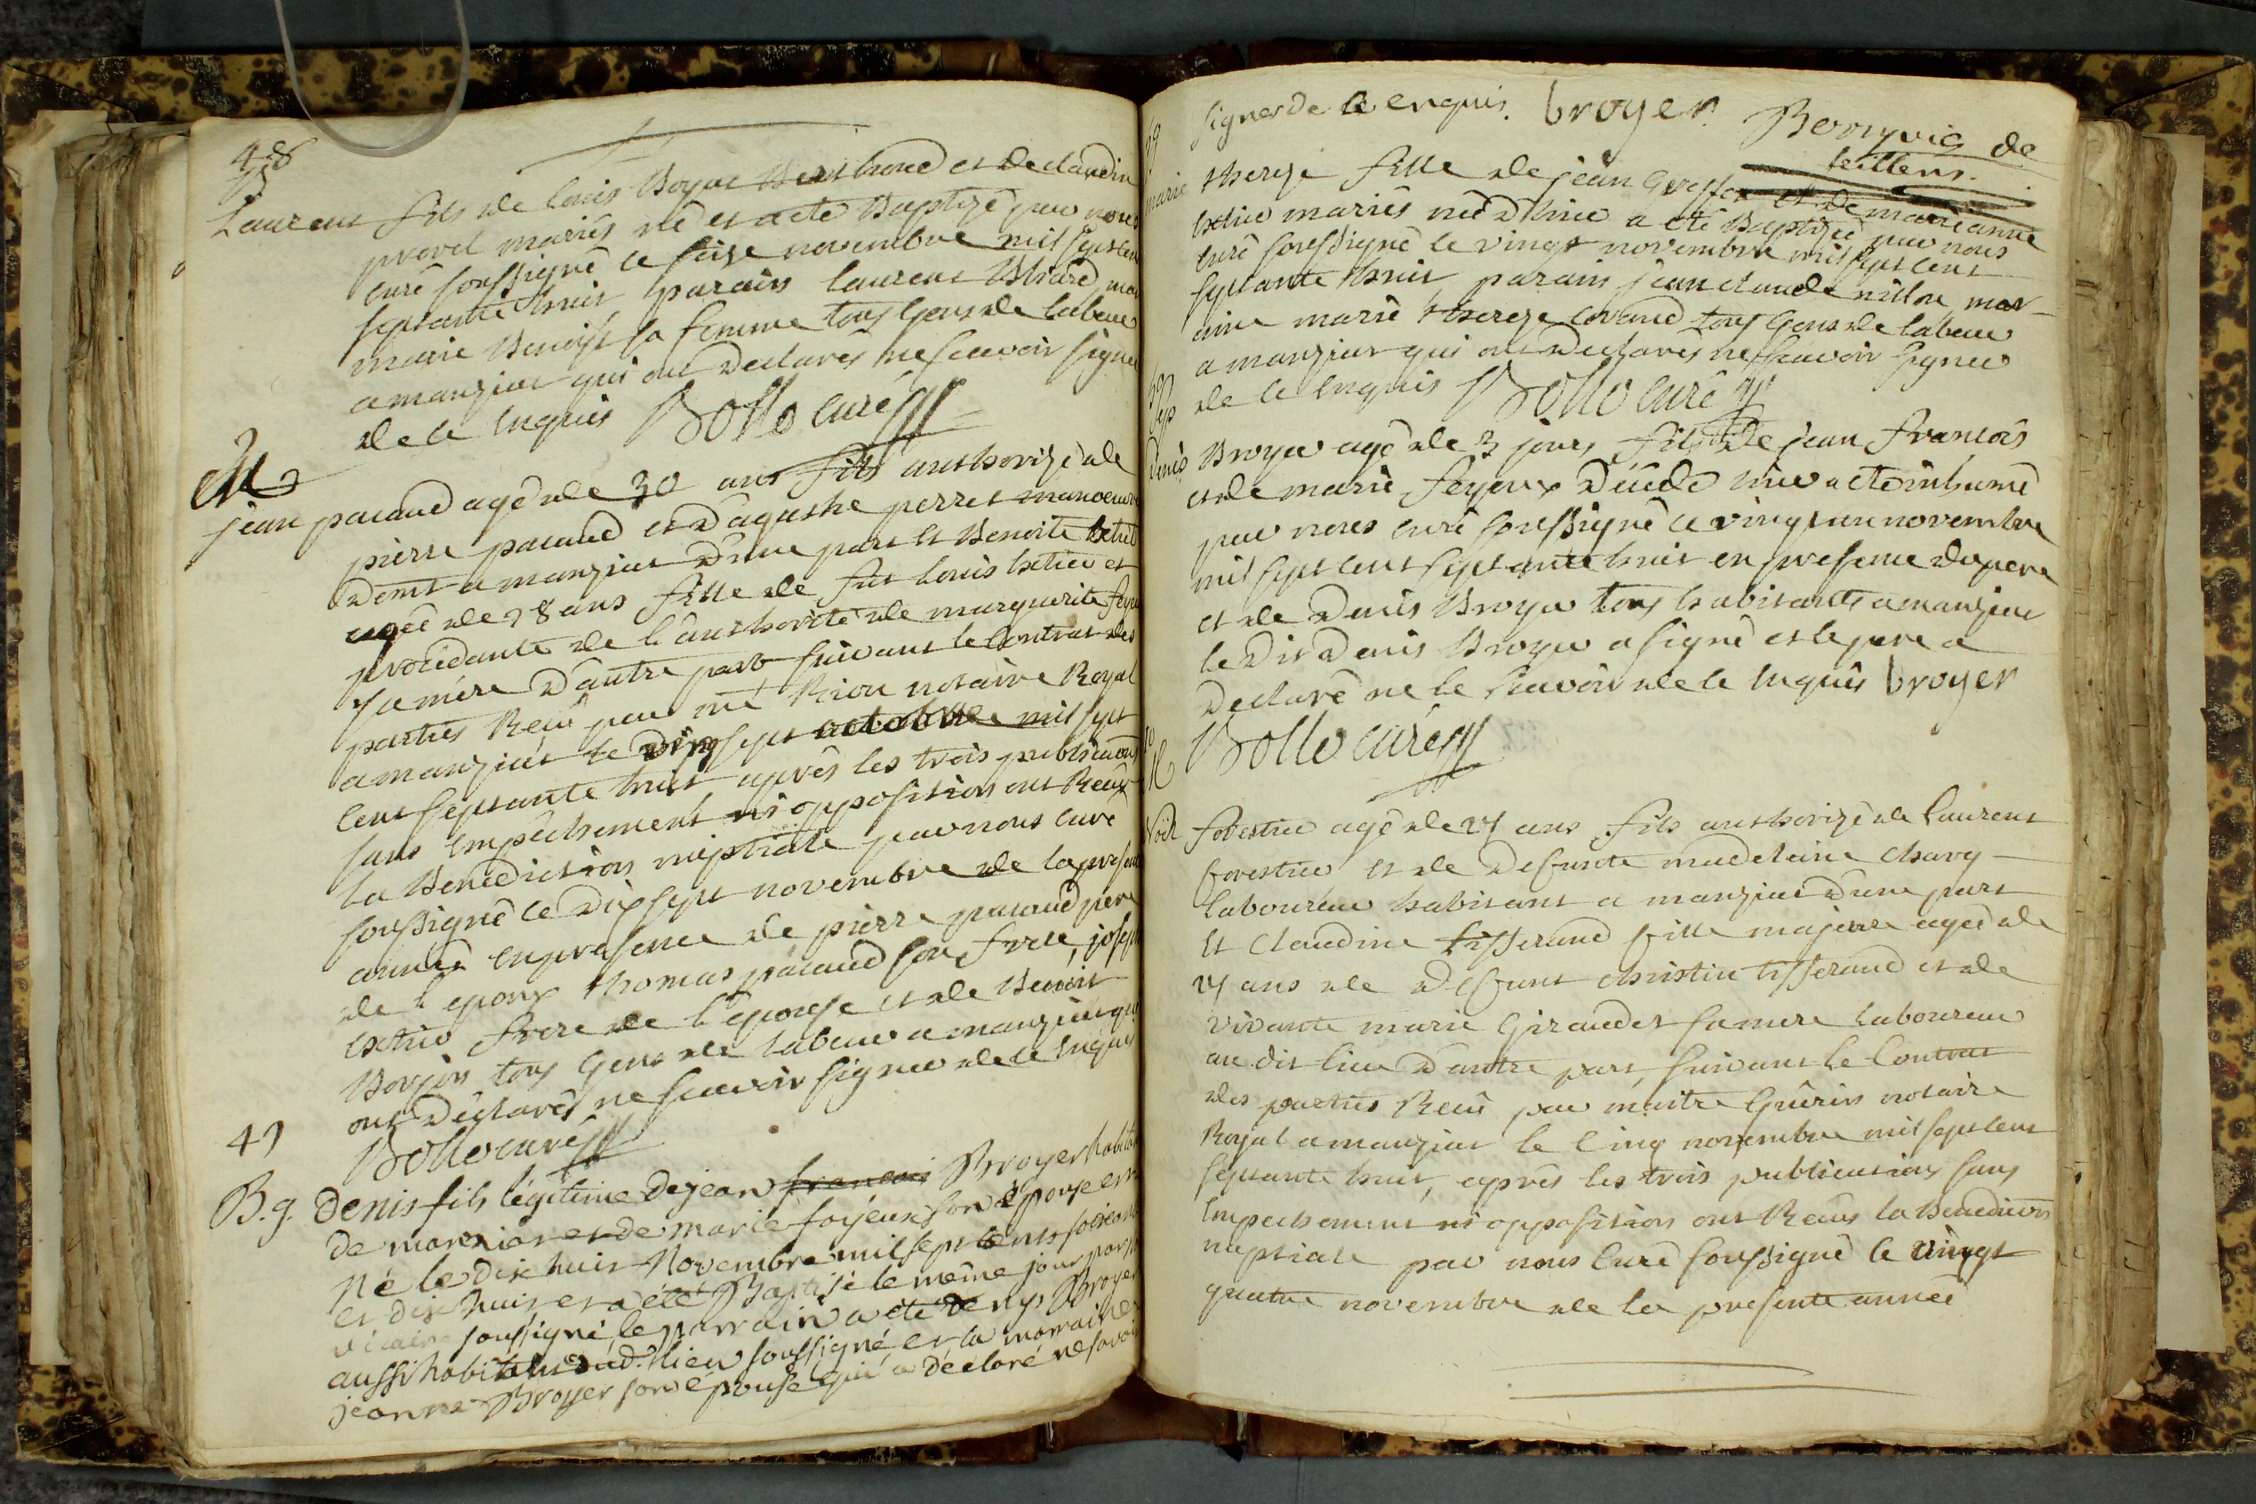 48
Laurent fils de louis Boyat et de claudine
provet mariés né et a eté Baptizé par nous
curé soussigné le seize novembre mil sept cent
septante huit parain laurent
marie Benoist sa femme tous gens de labeur
a manziat qui ont declarés ne scavoir signer
de ce enquis Bollo curé
M
jean pacaud agé de 30 ans fils authorizé de
pierre pacaud et d'agathe perret manoeuvre
dem.t a manziat d'une part et Benoite
agée de 28 ans fille de fut louis et
procedante de l'authorité de marguerite
sa mére d'autre part suivant le contrat des
parties Recû par m.e notaire Royal
a manziat le sept octobre mil sept
cent septante huit aprês les trois publications
sans empêchement ni opposition ont Recû
la Benediction nuptiale par nous curé
soussigné le dix sept novembre de la present
année en presence de pierre pacaud pere
de l'epoux thomas pacaud son frere, joseph
frere de l'epouse et de Benoit
tous gens de labeur a manziat qui
ont déclarés ne scavoir signer de ce enquis
Bollo curé
49
B. g. Denis fils légitime de jean francois Broyer habitant
de manziat et de marie foyeux son épouse est
né le dix huit Novembre mil sept cents soixante
et dix huit et a été Baptisé le même jour par
vicaire soussigné, le parrain a été denys Broyer
aussi habitant aud. lieu soussigné et la marraine
jeanne Broyer son épouse qui a déclaré ne savoir
signer de ce enquis. broyer
de
marie therese fille de jean et de marie anne
mariés né a été Baptizée par nous
curé soussigné le vingt novembre mil sept cent
septante huit parain jean claude mar-
aine marie therese tous gens de labeur
a manziat qui ont declarés ne scavoir signer
de ce enquis Bollo curé
Denis Broyer agé de 3 jours fils de jean francois
et de marie feyeux décédé a eté inhumé
par nous curé soussigné le vingt un novembre
mil sept cent septante huit en presence du pere
et de Denis Broyer tous habitants a manziat
le dit Denis Broyer a signé et le pere a
declaré ne le scavoir de ce enquis broyer
Bollo curé
M
forestier agé de 27 ans fils authorizé de Laurent
forestier et de defunte madeleine chavy
laboureur habitant a manziat d'une part
et Claudine tisserand fille majeure agée de
27 ans de defunt christin tisserand et de
vivante marie Giraudet sa mere laboureur
au dit lieu d'autre part, suivant le Contrat
des parties Recû par maitre Guérin notaire
Royal a manziat le cinq novembre mil sept cent
septante huit, aprês les trois publications sans
Empechement ni opposition ont Recûs la Benediction
nuptiale par nous curé soussigné le vingt
quatre novembre de la presente année